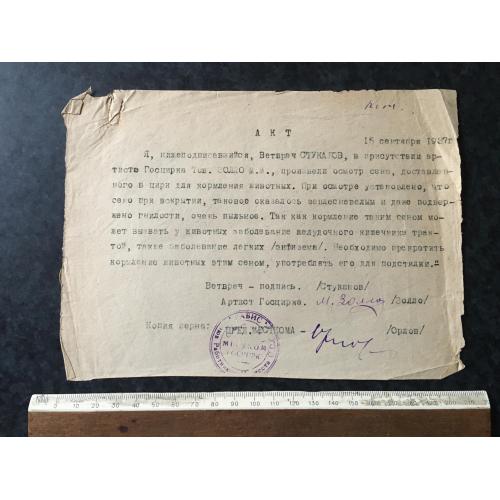 Коп.
АКТ
15 сентября 1937г
Я, нижеподписавшийся, Ветврач СТУКАЛОВ, в присутствии ар-
тиста Госцирка Тов. ЗОЛЛО М.И., произвели осмотр сена, доставлен-
ного в цирк для кормления животных. При осмотре установлено, что
сено при вскрытии, таковое оказалось заплесневелым и даже подвер-
жено гнилости, очень пыльное. Так как кормление таким сеном мо-
жет вызвать у животных заболевание желудочного кишечника трак-
той, также заболевание легких /эмфизема/. Необходимо прекратить
кормление животных этим сеном, употреблять его для подстилки."
Ветврач - подпись. /Стукалов/
Артист Госцирка. М. Золло /Золло/
Копия верна:
ПРЕД. МЕСТКОМА - /Орлов/
МЕСТКОМ
ГОСЦИРК
0 10 20 30 40 50 60 70 80 90 100 110 120 130 140 150 160 170 180 190 200 210 220 230 240